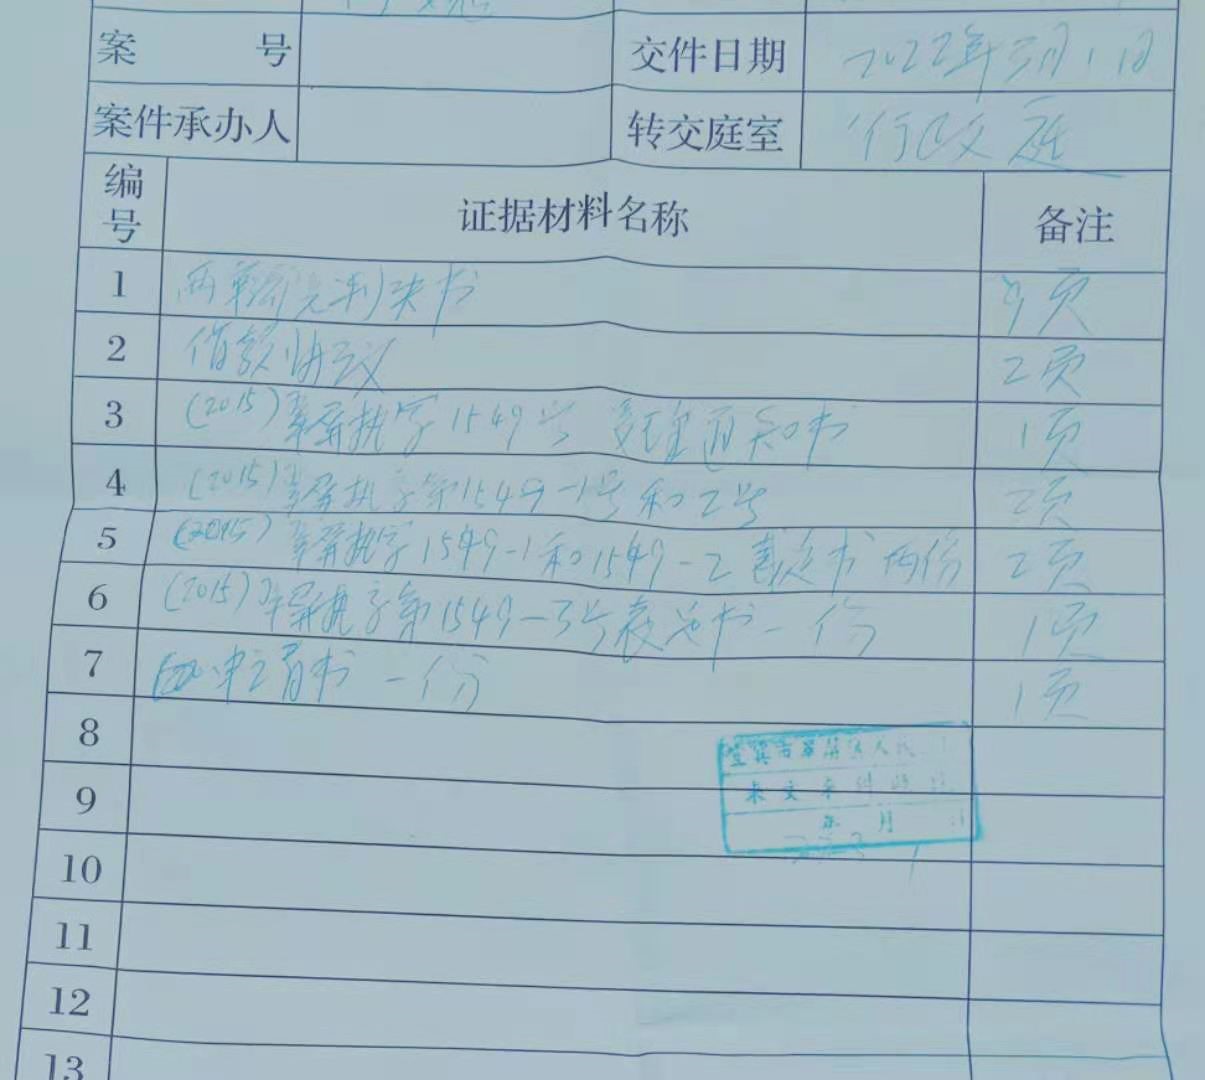 案 号 交件日期 2022年3月1日
案件承办人 转交庭室 行政庭
编号 证据材料名称 备注
1 判决书 9页
2 借款协议 2页
3 (2015)翠屏执字1549号 受理通知书 1页
4 (2015)翠屏执字第1549-1号和2号 2页
5 (2015)翠屏执字1549-1和1549-2裁定书两份 2页
6 (2015)翠屏执字第1549-3号裁定书一份 1页
7 申请书一份 1页
8
宜宾市翠屏区人民
9
来文
年 月
10
11
12
13